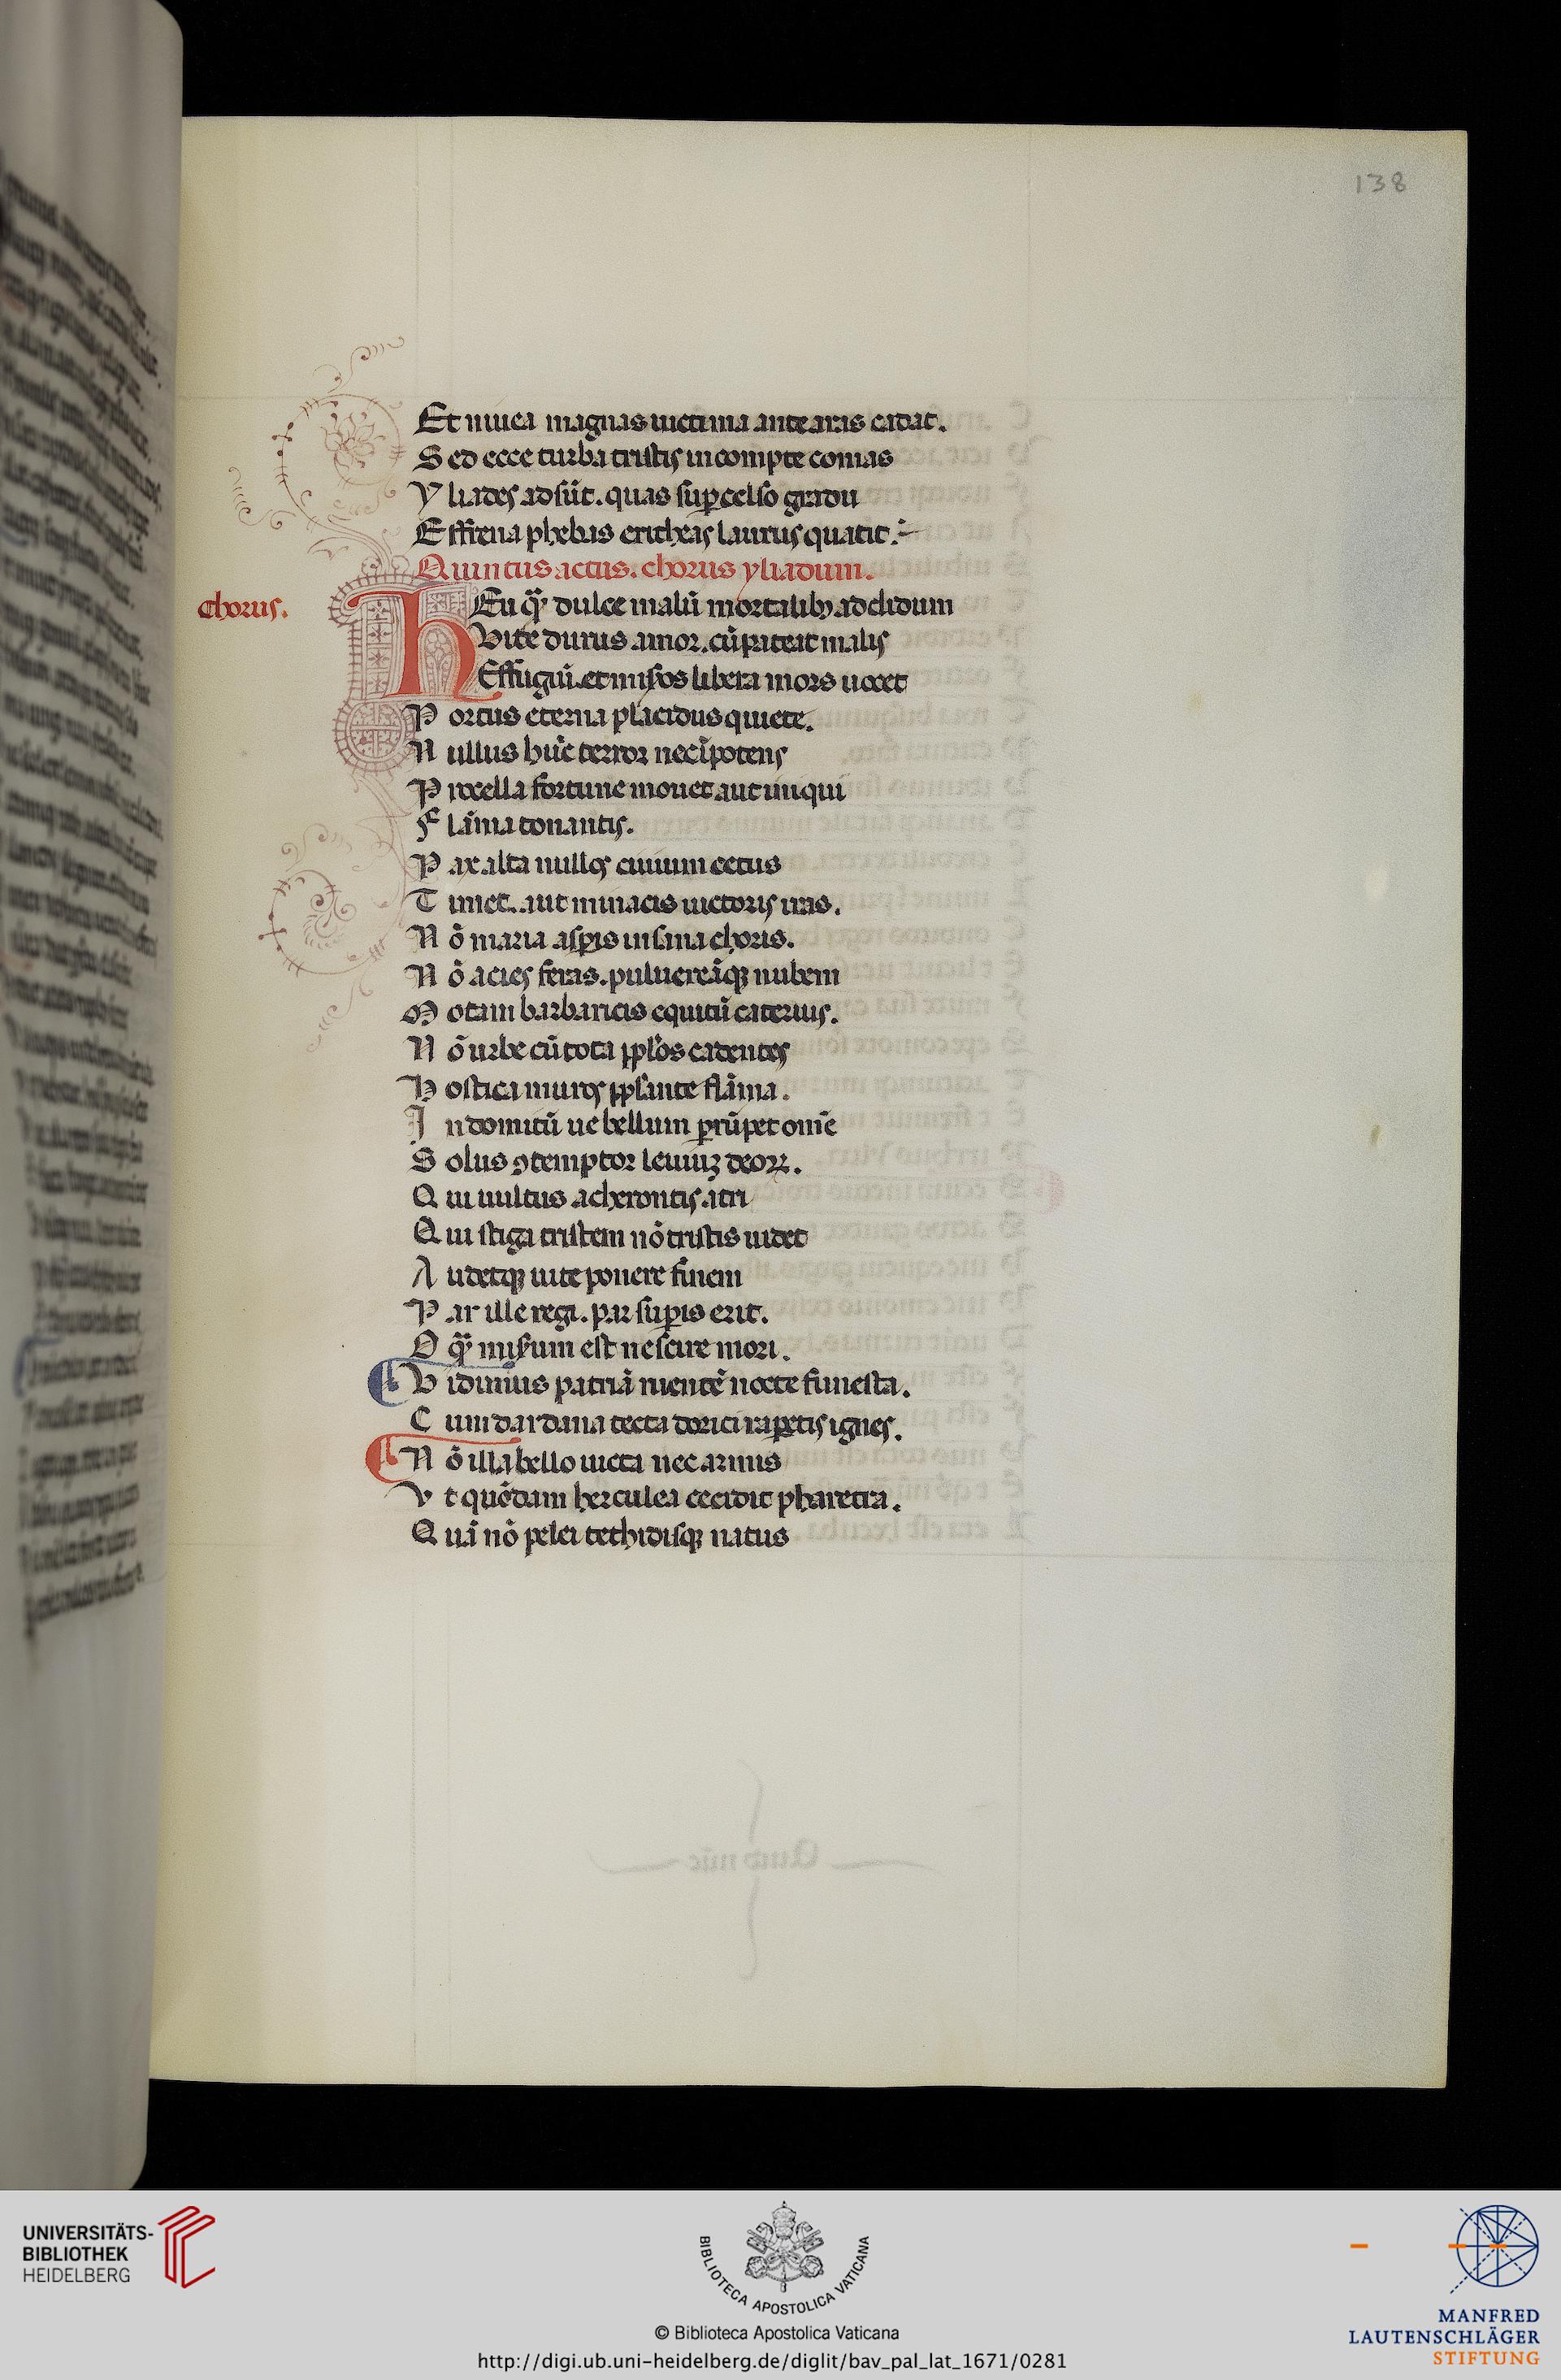 138
Et niuea magnas uictima ante aras cadat.
Sed ecce turba tristis incompte comas
Yliades adsūt. quas suꝑ celso gradu
Effrena phebas eritheas laurus quatit.
Quintus actus. chorus yliadum.
Chorus.
HEu qͣ̄ dulce malū mortalibꝫ additum
Vite durus amor. cū pateat malis
Effugiū. et mis̄os libera mors uocet
Portus eterna placidus quiete.
Nullus hūc terror nec īpotens
Procella fortune mouet aut iniqui
Flāma tonantis.
Pax alta nullos ciuium cetus
Timet. aut minacis uictoris iras.
Nō maria aspis insana choris.
Nō acies feras. puluereāqꝫ nubem
Motam barbaricis equitū cateruis.
Nō urbe cū tota pplōs cadentes
Hostica muros pplante flāma.
Indomitū ue bellum ꝑrūpet om̄e
Solus ꝯtemptor leuiuꝫ deoꝝ.
Qui uultus acherontis atri
Qui stiga tristem nō tristis uidet
Audetqꝫ uite ponere finem
Par ille regi. par suꝑis erit.
O qͣ̄ mis̄um est nescire mori.
Vidimus patriā ruentē nocte funesta.
Cum dardana tecta dorici raꝑetis ignes.
Nō illa bello uicta nec armis
Vt quōdam herculea cecidit pharetra.
Quā nō pelei tethidisqꝫ natus
UNIVERSITÄTS-
BIBLIOTHEK
HEIDELBERG
BIBLIOTECA APOSTOLICA VATICANA
© Biblioteca Apostolica Vaticana
http://digi.ub.uni-heidelberg.de/diglit/bav_pal_lat_1671/0281
MANFRED
LAUTENSCHLÄGER
STIFTUNG